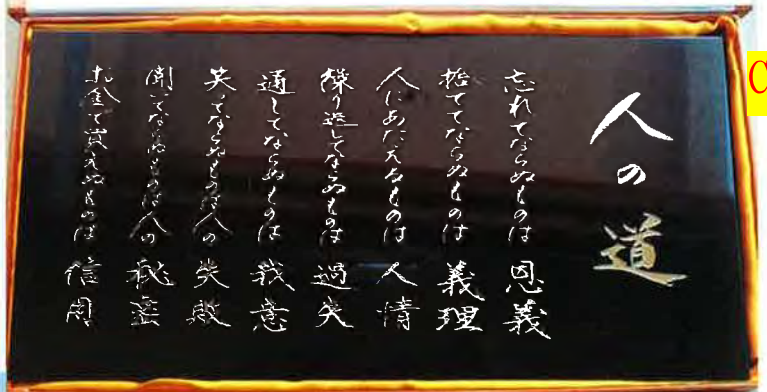 人の道
忘れてならぬものは 恩義
捨ててならぬものは 義理
人にあたえるものは 人情
繰り返してならぬものは 過失
通してならぬものは 我意
笑ってならぬものは人の 失敗
聞いてならぬものは人の 秘密
お金で買えぬものは 信用
C